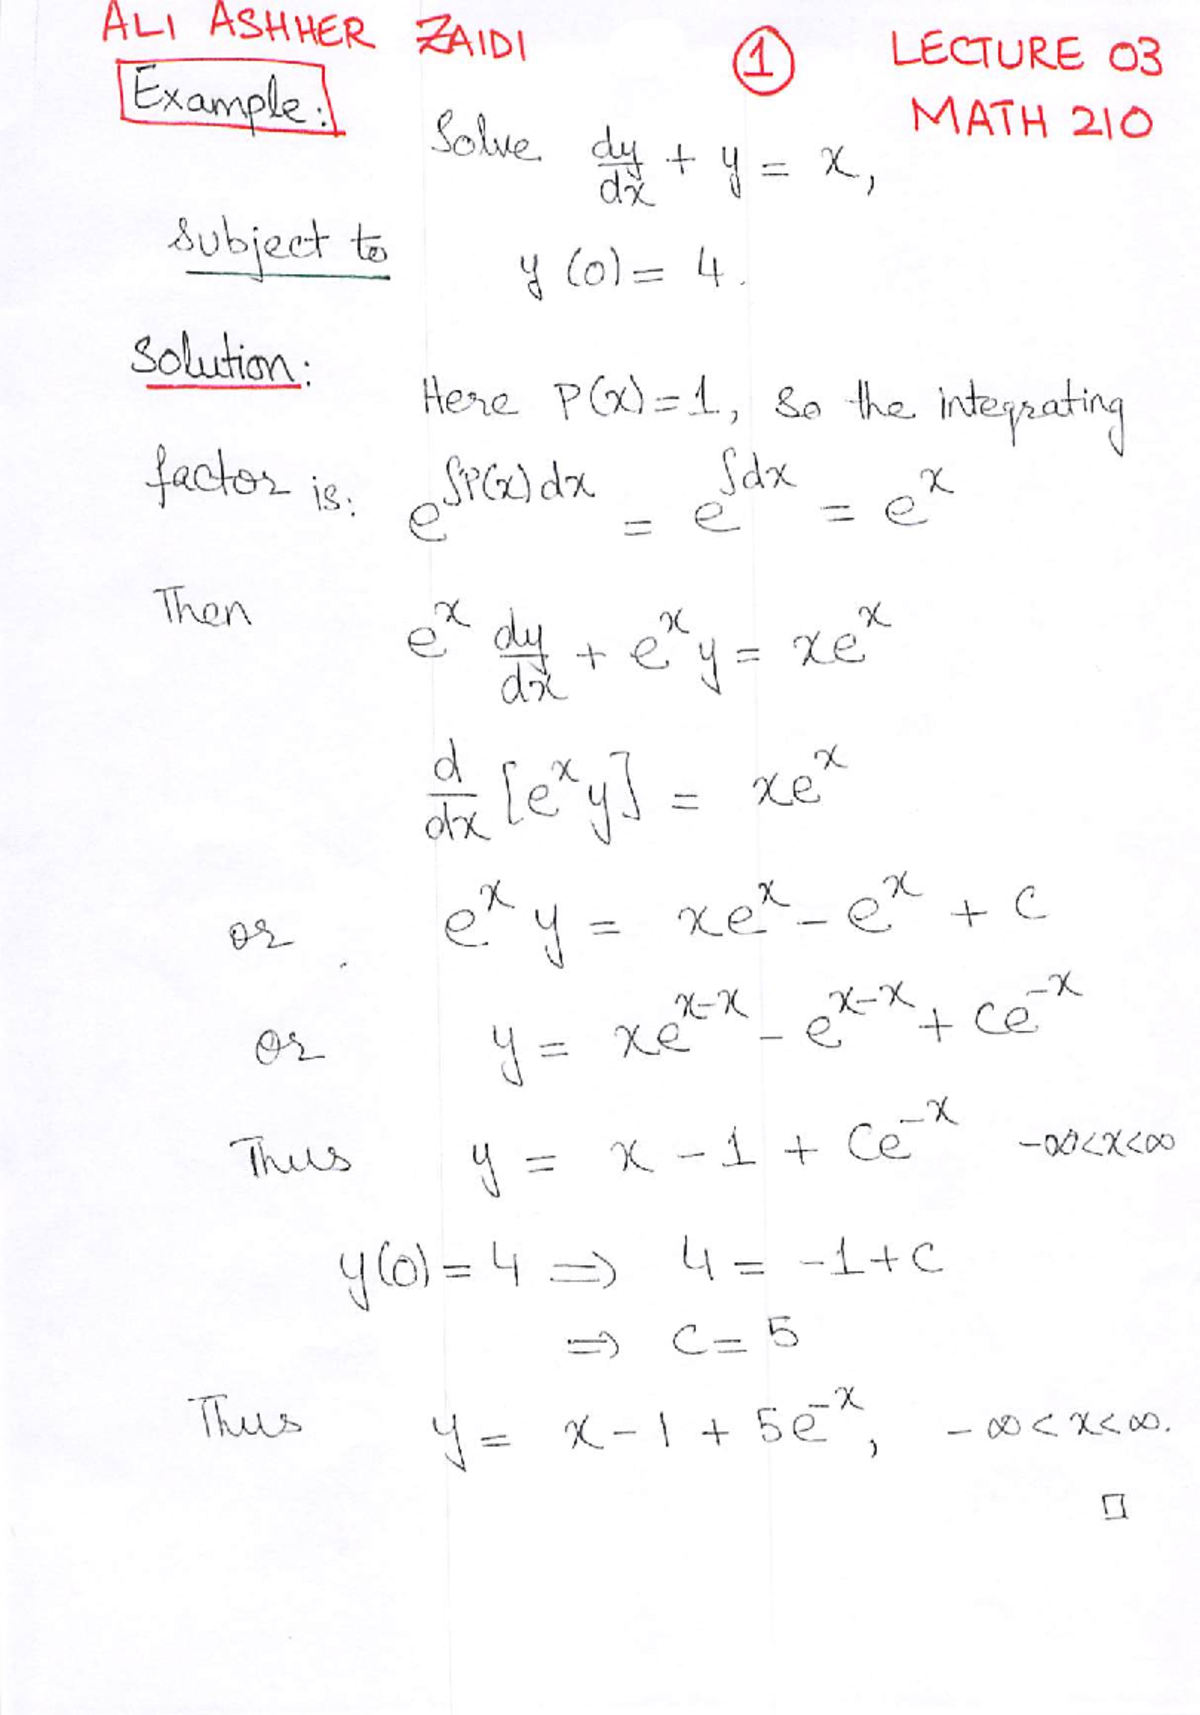 ALI ASHHER ZAIDI ① LECTURE 03
Example: MATH 210
Solve dy/dx + y = x,
subject to y(0) = 4.
Solution:
Here P(x) = 1, so the integrating
factor is: e^{∫P(x)dx} = e^{∫dx} = e^x
Then e^x dy/dx + e^x y = xe^x
d/dx [e^x y] = xe^x
or e^x y = xe^x - e^x + c
or y = xe^{x-x} - e^{x-x} + ce^{-x}
Thus y = x - 1 + ce^{-x} -∞<x<∞
y(0) = 4 ⇒ 4 = -1 + c
⇒ c = 5
Thus y = x - 1 + 5e^{-x}, -∞<x<∞.
□